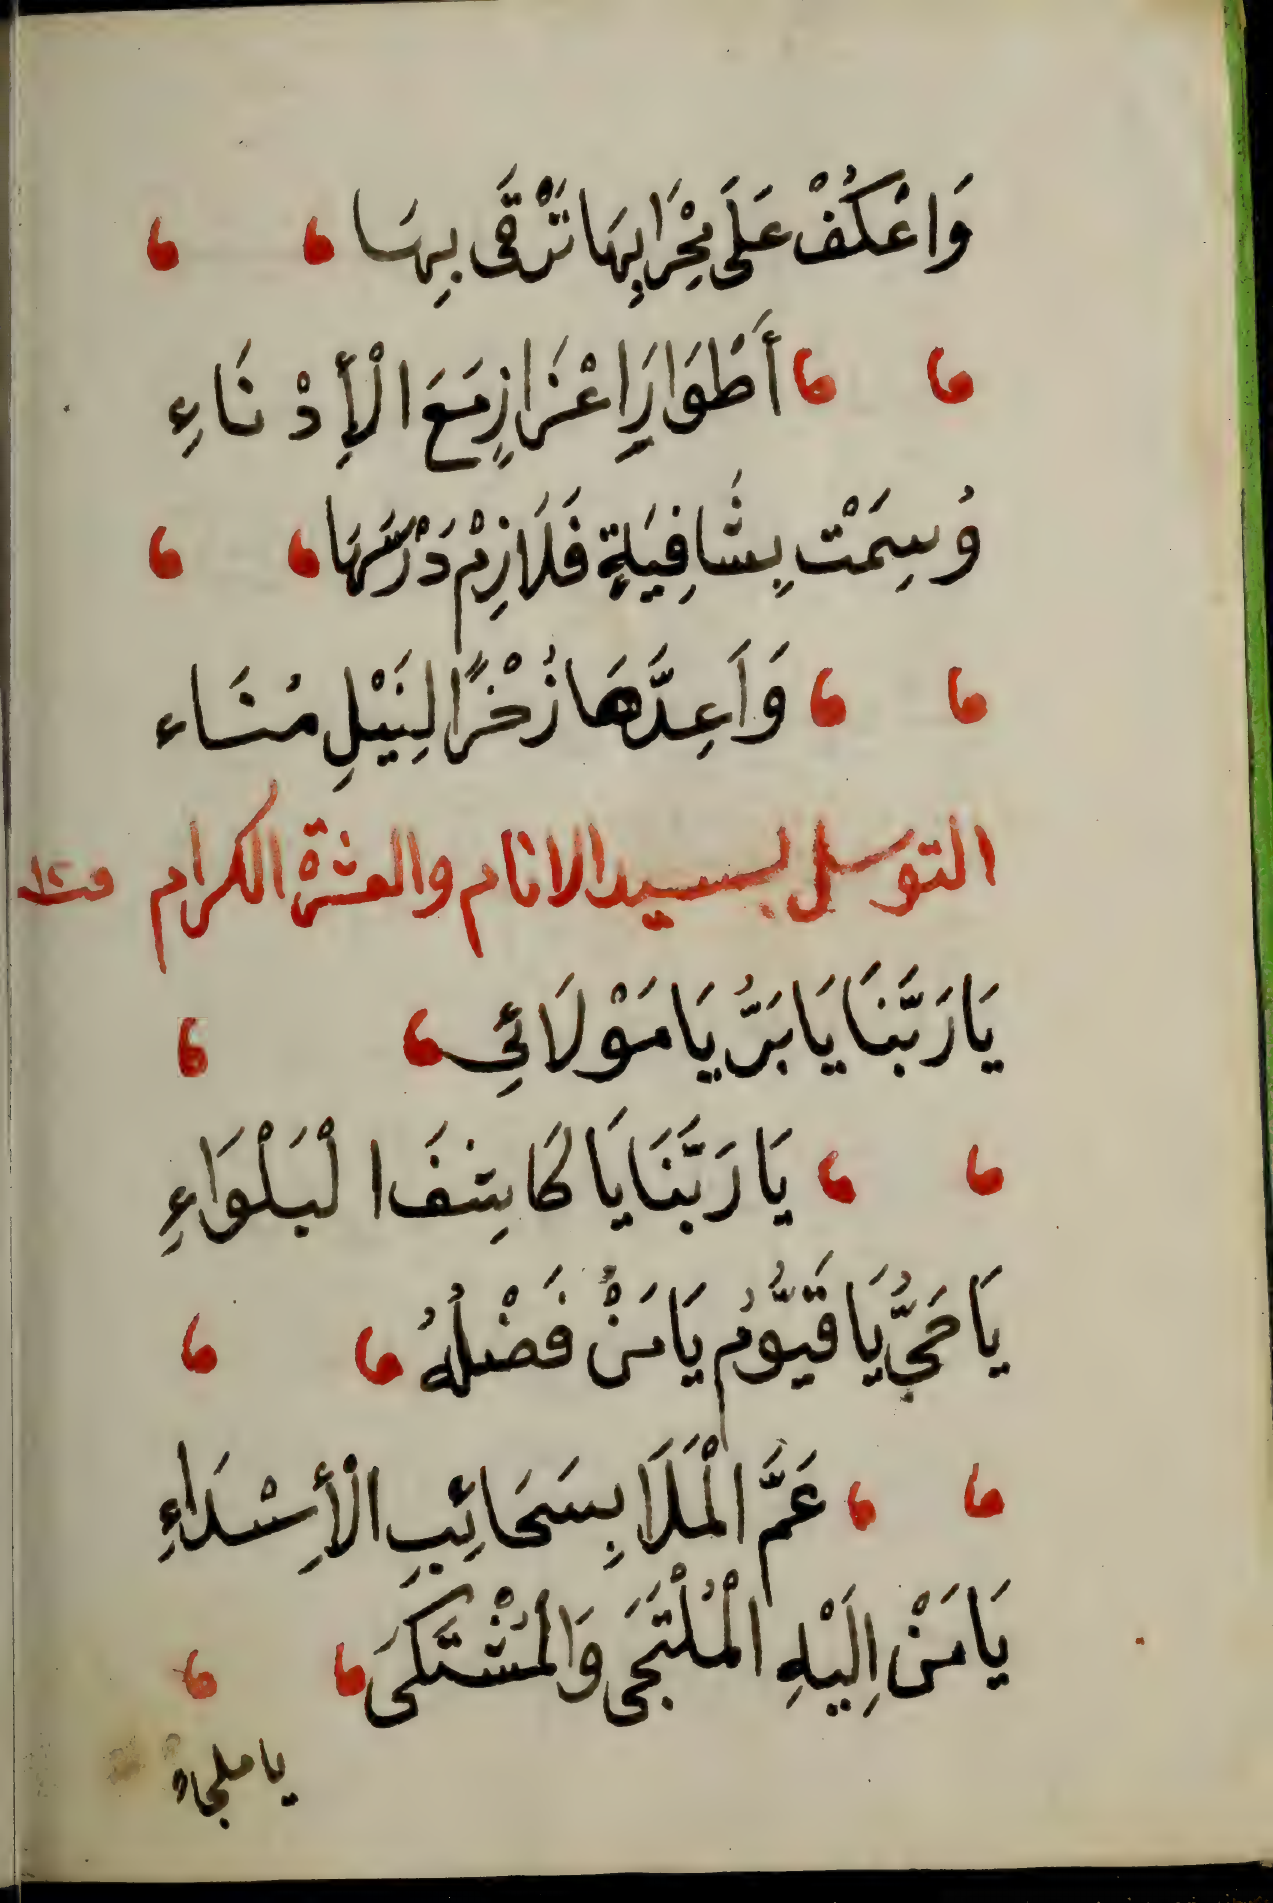 وَاعْكُفْ عَلَى مِحْرَابِهَا تَرْقَى بِهَا
أَطْوَارَ اِعْزَازٍ مَعَ الْإِدْنَاءِ
وُسِمَتْ بِشَافِيَةٍ فَلَازِمْ دَرْسَهَا
وَاَعِدَّهَا زُخْرًا لِنَيْلِ مُنَاء
التوسل بسيد الانام والعشرة الكرام
يَا رَبَّنَا يَا بَرُّ يَا مَوْلَائِي
يَا رَبَّنَا يَا كَاشِفَ الْبَلْوَاءِ
يَا حَيُّ يَا قَيُّومُ يَا مَنْ فَضْلُهُ
عَمَّ الْمَلَا بِسَحَائِبِ الْأَسْدَاءِ
يَا مَنْ اِلَيْهِ الْمُلْتَجَى وَالْمُشْتَكَى
يا ملجاء